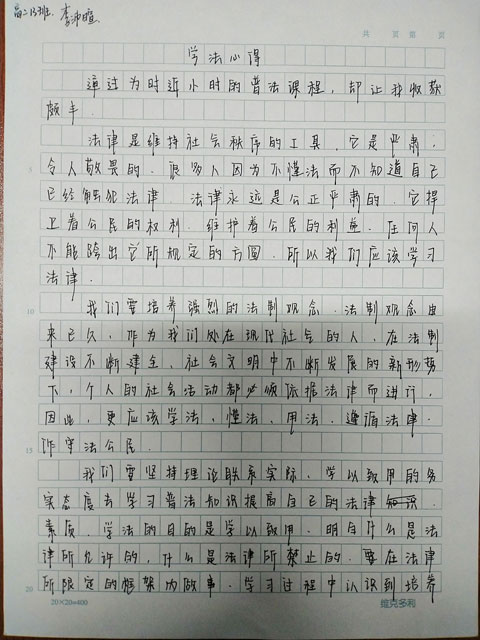 高二13班 李沛暄
共 页 第 页
学法心得
通过为时近小时的普法课程，却让我收获
颇丰．
法律是维持社会秩序的工具，它是严肃，
令人敬畏的．很多人因为不懂法而不知道自己
已经触犯法律 法律永远是公正严肃的．它捍
卫着公民的权利．维护着公民的利益．任何人
不能除出它所规定的方圆．所以我们应该学习
法律．
我们要培养强烈的法制观念．法制观念由
来已久，作为我们处在现代社会的人，在法制
建设不断建全、社会文明中不断发展的新形势
下，个人的社会活动都必须依据法律而进行，
因此，更应该学法、懂法、用法、遵循法律．
作守法公民．
我们要坚持理论联系实际，学以致用的务
实态度去学习普法知识提高自己的法律知识
素质．学法的目的是学以致用．明白什么是法
律所允许的，什么是法律所禁止的．要在法律
所限定的框架内做事．学习过程中认识到培养
5
10
15
20
20×20=400
维克多利